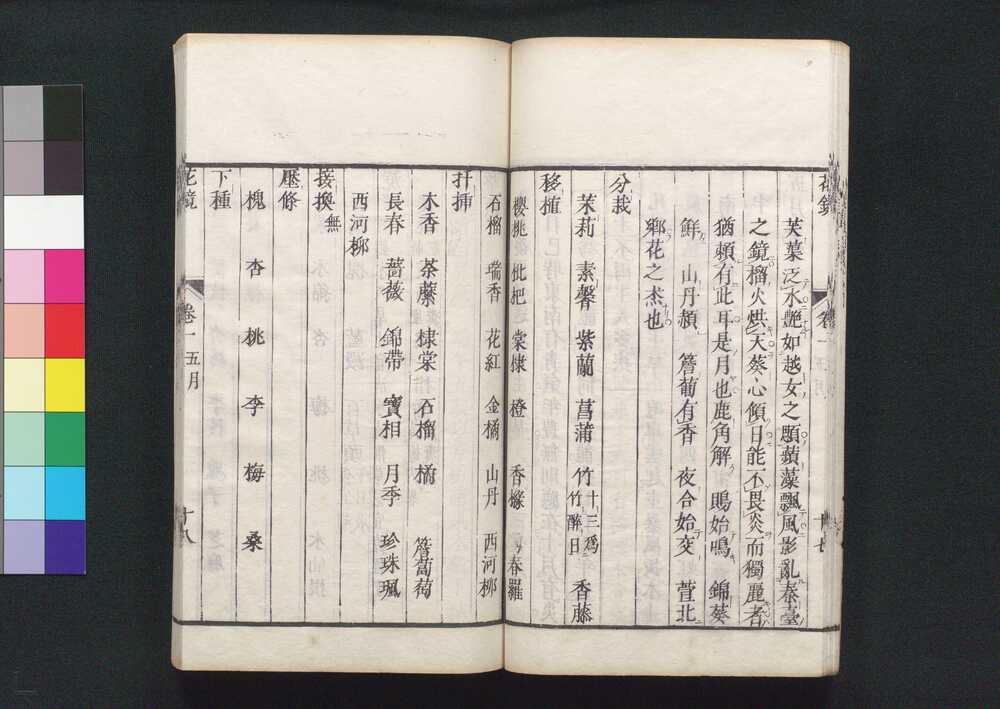 花鏡 卷一 五月
芙蕖泛水艶如越女之顋蘋藻飄風影亂秦臺
之鏡榴火烘天葵心傾日能不畏炎而獨麗者
猶賴有此耳是月也鹿角解 鵙始鳴 錦葵
鮮 山丹赬 簷蔔有香 夜合始交 萱北
鄉花之杰也
分栽
茉莉 素馨 紫蘭 菖蒲 竹 十三爲竹醉日 香藤
移植
櫻桃 枇杷 棠棣 橙 香櫞 春羅
石榴 瑞香 花紅 金橘 山丹 西河柳
扦揷
木香 荼蘼 棣棠 石榴 橘 簷蔔
長春 薔薇 錦帶 寶相 月季 珍珠珮
西河柳
接換 無
壓條
槐 杏 桃 李 梅 桑
下種
花鏡 卷一 五月 十八